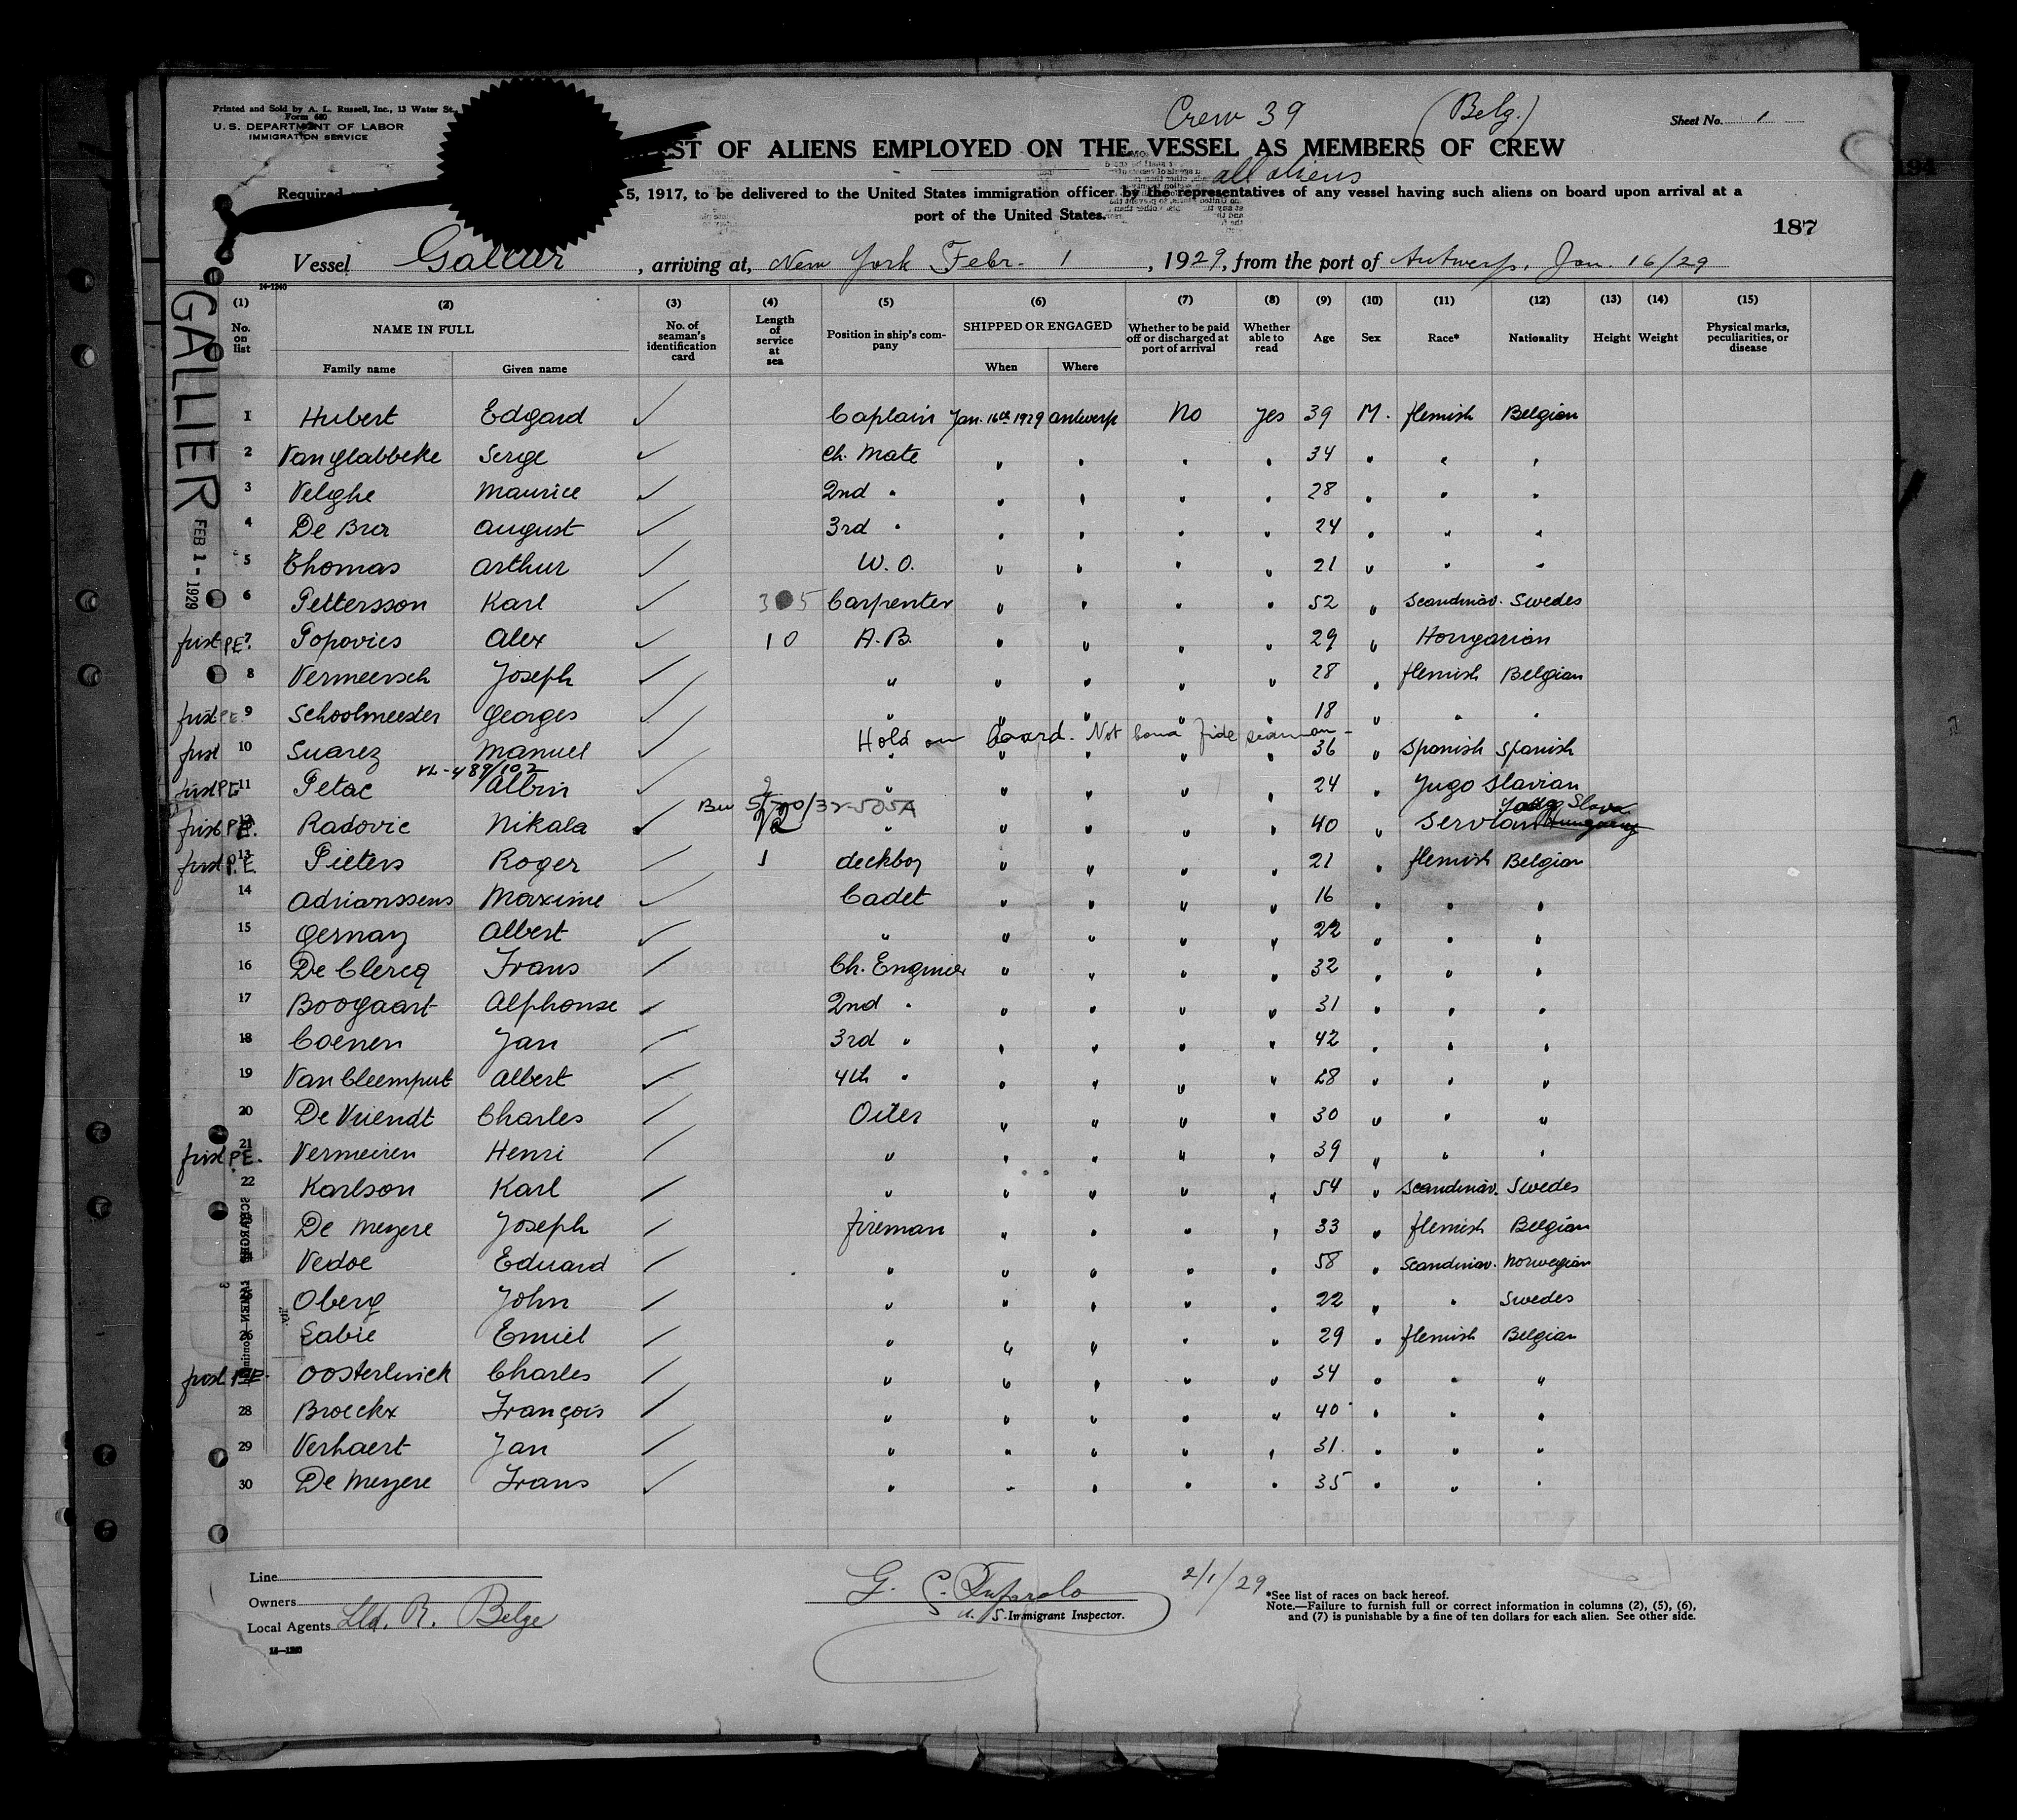 Crew 39 (Belg.)
Printed and Sold by A. L. Russell, Inc., 13 Water St.,
Form 680
U. S. DEPARTMENT OF LABOR
IMMIGRATION SERVICE
Sheet No. 1
ST OF ALIENS EMPLOYED ON THE VESSEL AS MEMBERS OF CREW
all aliens
Required 5, 1917, to be delivered to the United States immigration officer by the representatives of any vessel having such aliens on board upon arrival at a
port of the United States.
187
Vessel Gallier, arriving at, New York Febr. 1, 1929, from the port of Antwerp, Jan. 16/29
14-1240
GALLIER FEB 1 - 1929
(1) (2) (3) (4) (5) (6) (7) (8) (9) (10) (11) (12) (13) (14) (15)
No. on list NAME IN FULL No. of seaman's identification card Length of service at sea Position in ship's company SHIPPED OR ENGAGED Whether to be paid off or discharged at port of arrival Whether able to read Age Sex Race* Nationality Height Weight Physical marks, peculiarities, or disease
Family name Given name When Where
1 Hubert Edgard ✓ Captain Jan. 16th 1929 Antwerp No yes 39 M. flemish Belgian
2 Van Glabbeke Serge ✓ Ch. Mate " " " " 34 " " "
3 Velghe Maurice ✓ 2nd " " " " " 28 " " "
4 De Buer August ✓ 3rd " " " " " 24 " " "
5 Thomas Arthur ✓ W. O. " " " " 21 " " "
6 Pettersson Karl ✓ 5 Carpenter " " " " 52 " Scandinav. Swedes
first P.E. 7 Popovics Alex ✓ 10 A. B. " " " " 29 " Hongarian
8 Vermeersch Joseph ✓ " " " " " 28 " flemish Belgian
first P.E. 9 Schoolmeester Georges ✓ " " " " " 18 " " "
Hold on board. Not bona fide seaman -
first 10 Suarez Manuel ✓ " " " " " 36 " Spanish Spanish
first P.E. 11 Petac Albin ✓ " " " " " 24 Yugo Slavian
first P.E. 12 Radovic Nikala ✓ " " " " " 40 " Servian Yugo Slava
first P.E. 13 Pieters Roger ✓ 1 deckboy " " " " 21 " flemish Belgian
14 Adrianssens Maxime ✓ Cadet " " " " 16 " " "
15 Gernay Albert ✓ " " " " " 22 " " "
16 De Clercq Frans ✓ Ch. Enginier " " " " 32 " " "
17 Boogaart Alphonse ✓ 2nd " " " " " 31 " " "
18 Coenen Jan ✓ 3rd " " " " " 42 " " "
19 Van Cleemput Albert ✓ 4th " " " " " 28 " " "
20 De Vriendt Charles ✓ Oiler " " " " 30 " " "
first P.E. 21 Vermeiren Henri ✓ " " " " " 39 " " "
22 Karlson Karl ✓ " " " " " 54 " Scandinav. Swedes
De Meyere Joseph ✓ fireman " " " " 33 " flemish Belgian
Vedoe Eduard ✓ " " " " " 58 " Scandinav. Norwegian
Oberg John ✓ " " " " " 22 " " Swedes
26 Labie Emiel ✓ " " " " " 29 " flemish Belgian
first P.E. Oosterlinck Charles ✓ " " " " " 34 " " "
28 Broeckx François ✓ " " " " " 40 " " "
29 Verhaert Jan ✓ " " " " " 31 " " "
30 De Meyere Frans ✓ " " " " " 35 " " "
Line
Owners
Local Agents Lld. R. Belge
14-1240
U. S. Immigrant Inspector.
2/1/29
*See list of races on back hereof.
Note.—Failure to furnish full or correct information in columns (2), (5), (6),
and (7) is punishable by a fine of ten dollars for each alien. See other side.